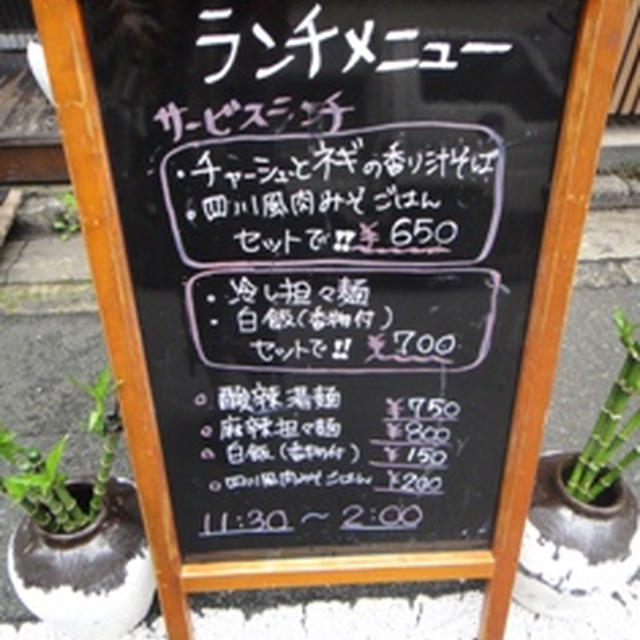 ランチメニュー
サービスランチ
・チャーシューとネギの香り汁そば
・四川風肉みそごはん
セットで!! ¥650
・冷し担々麺
・白飯(香物付)
セットで!! ¥700
○ 酸辣湯麺 ¥750
○ 麻辣担々麺 ¥800
○ 白飯(香物付) ¥150
○ 四川風肉みそごはん ¥200
11:30~2:00